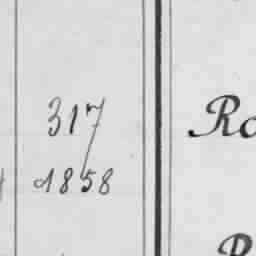 317
1858
Ro